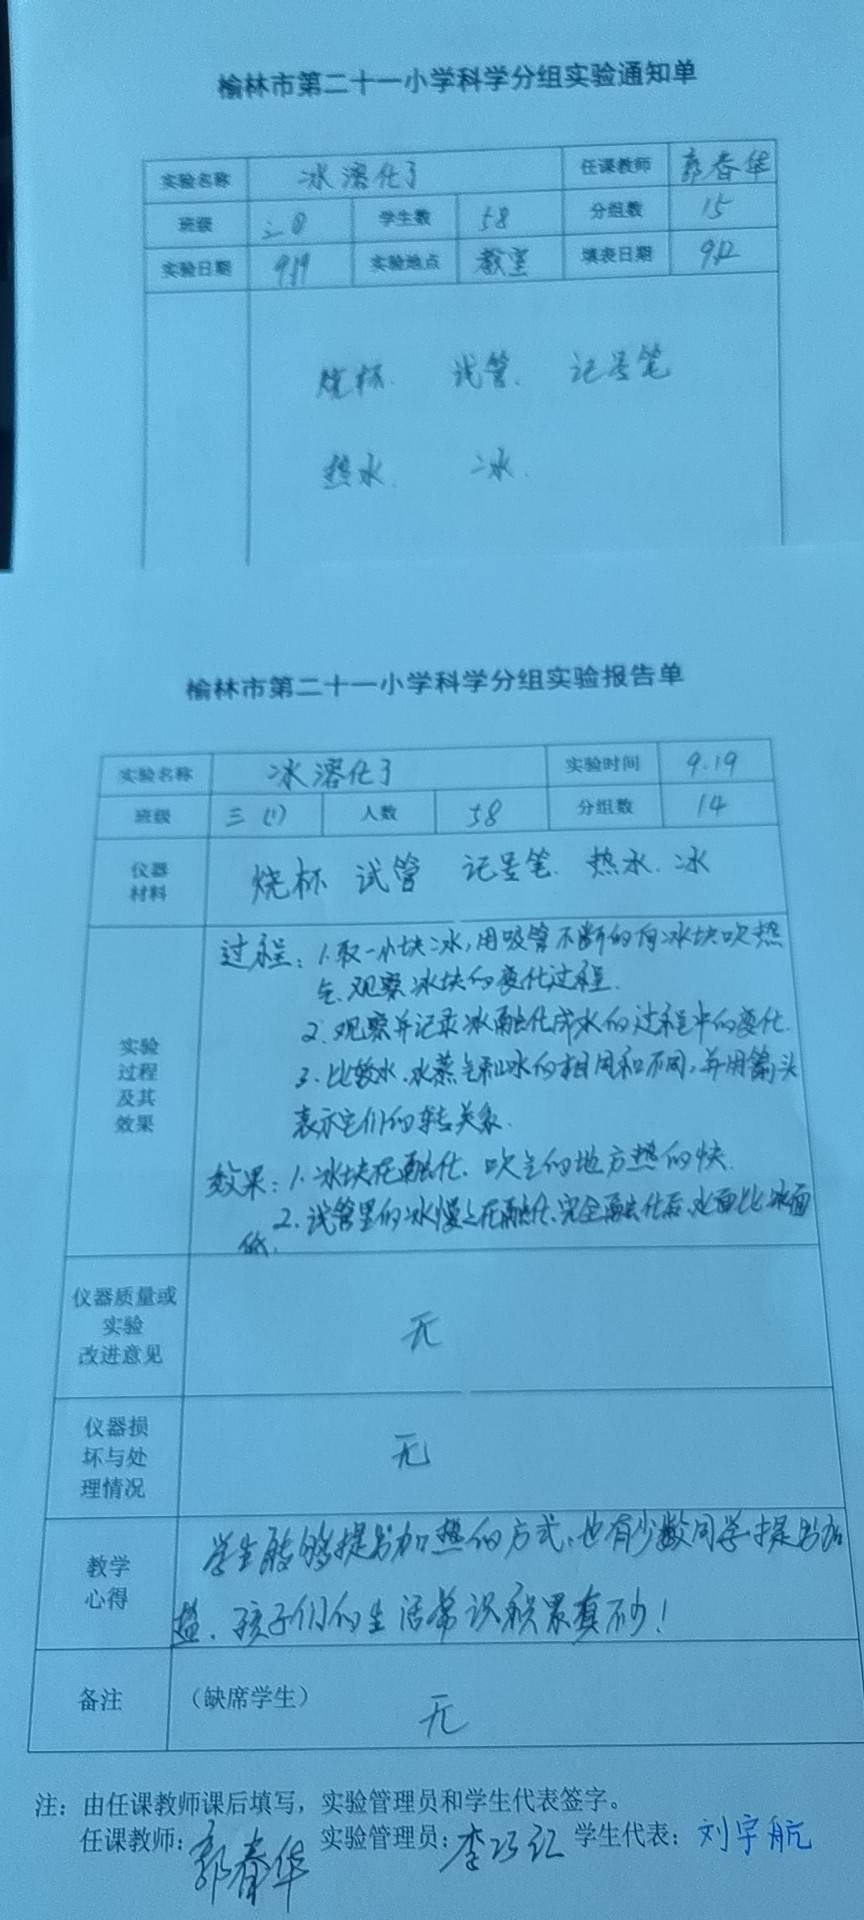 榆林市第二十一小学科学分组实验通知单
实验名称 冰溶化了 任课教师 郭春华
班级 三 学生数 58 分组数 15
实验日期 9.19 实验地点 教室 填表日期 9.12
烧杯. 试管. 记号笔
热水. 冰.
榆林市第二十一小学科学分组实验报告单
实验名称 冰溶化了 实验时间 9.19
班级 三(1) 人数 58 分组数 14
仪器材料 烧杯 试管 记号笔. 热水. 冰
实验过程及其效果
过程: 1.取一小块冰,用吸管不断的向冰块吹热
气.观察冰块的变化过程.
2.观察并记录冰融化成水的过程中的变化.
3.比较水.水蒸气和冰的相同和不同,并用箭头
表示它们的转关系.
效果: 1.冰块在融化.吹气的地方热的快.
2.试管里的冰慢慢在融化.完全融化后,水面比冰面
低.
仪器质量或
实验
改进意见
无
仪器损
坏与处
理情况
无
教学
心得
学生能够提出加热的方式,也有少数同学提出加
盐.孩子们的生活常识积累真不少!
备注 (缺席学生) 无
注:由任课教师课后填写,实验管理员和学生代表签字。
任课教师:郭春华 实验管理员:李巧红 学生代表:刘宇航